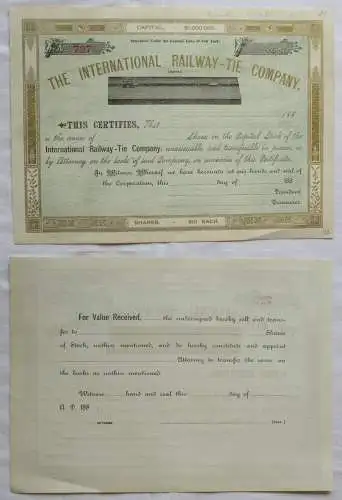 CAPITAL, $1,000,000.
Incorporated Under the General Laws of New York.
737
THE INTERNATIONAL RAILWAY-TIE COMPANY,
188
THIS CERTIFIES, That
is the owner of Shares in the Capital Stock of the
International Railway-Tie Company, transferable in person or
by Attorney on the books of said Company, on surrender of this Certificate.
In Witness Whereof we have hereunto set our hands and seal of
the Corporation, this day of 188
President
Treasurer
SHARES $10 EACH.
For Value Received, the undersigned hereby sell and trans-
fer to Shares
of Stock, within mentioned, and do hereby constitute and appoint
Attorney to transfer the same on
the books as within mentioned.
Witness hand and seal this day of
A. D. 188
WITNESS